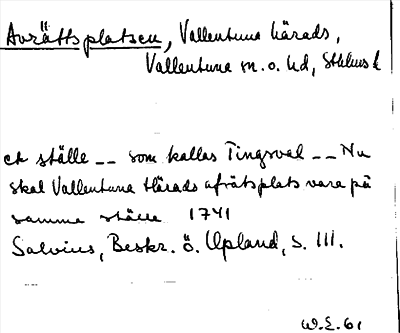 Avrättsplatsen, Vallentuna härads,
Vallentuna sn. o. hd, Sthlms l
ett ställe -- som kallas Tingsval -- Nu
skal Vallentuna Härads afrätsplats vara på
samma ställe 1741
Salvius, Beskr. ö. Upland, s. 111.
W.E. 61